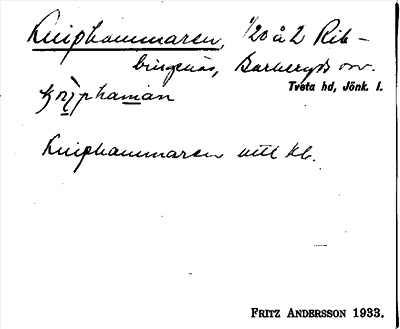 Kniphammaren, 1/20 å 2 Rib-
bingenäs, Barkeryds sn.
Tveta hd, Jönk. l.
knìphaman
Kniphammaren uttl kb.
FRITZ ANDERSSON 1933.